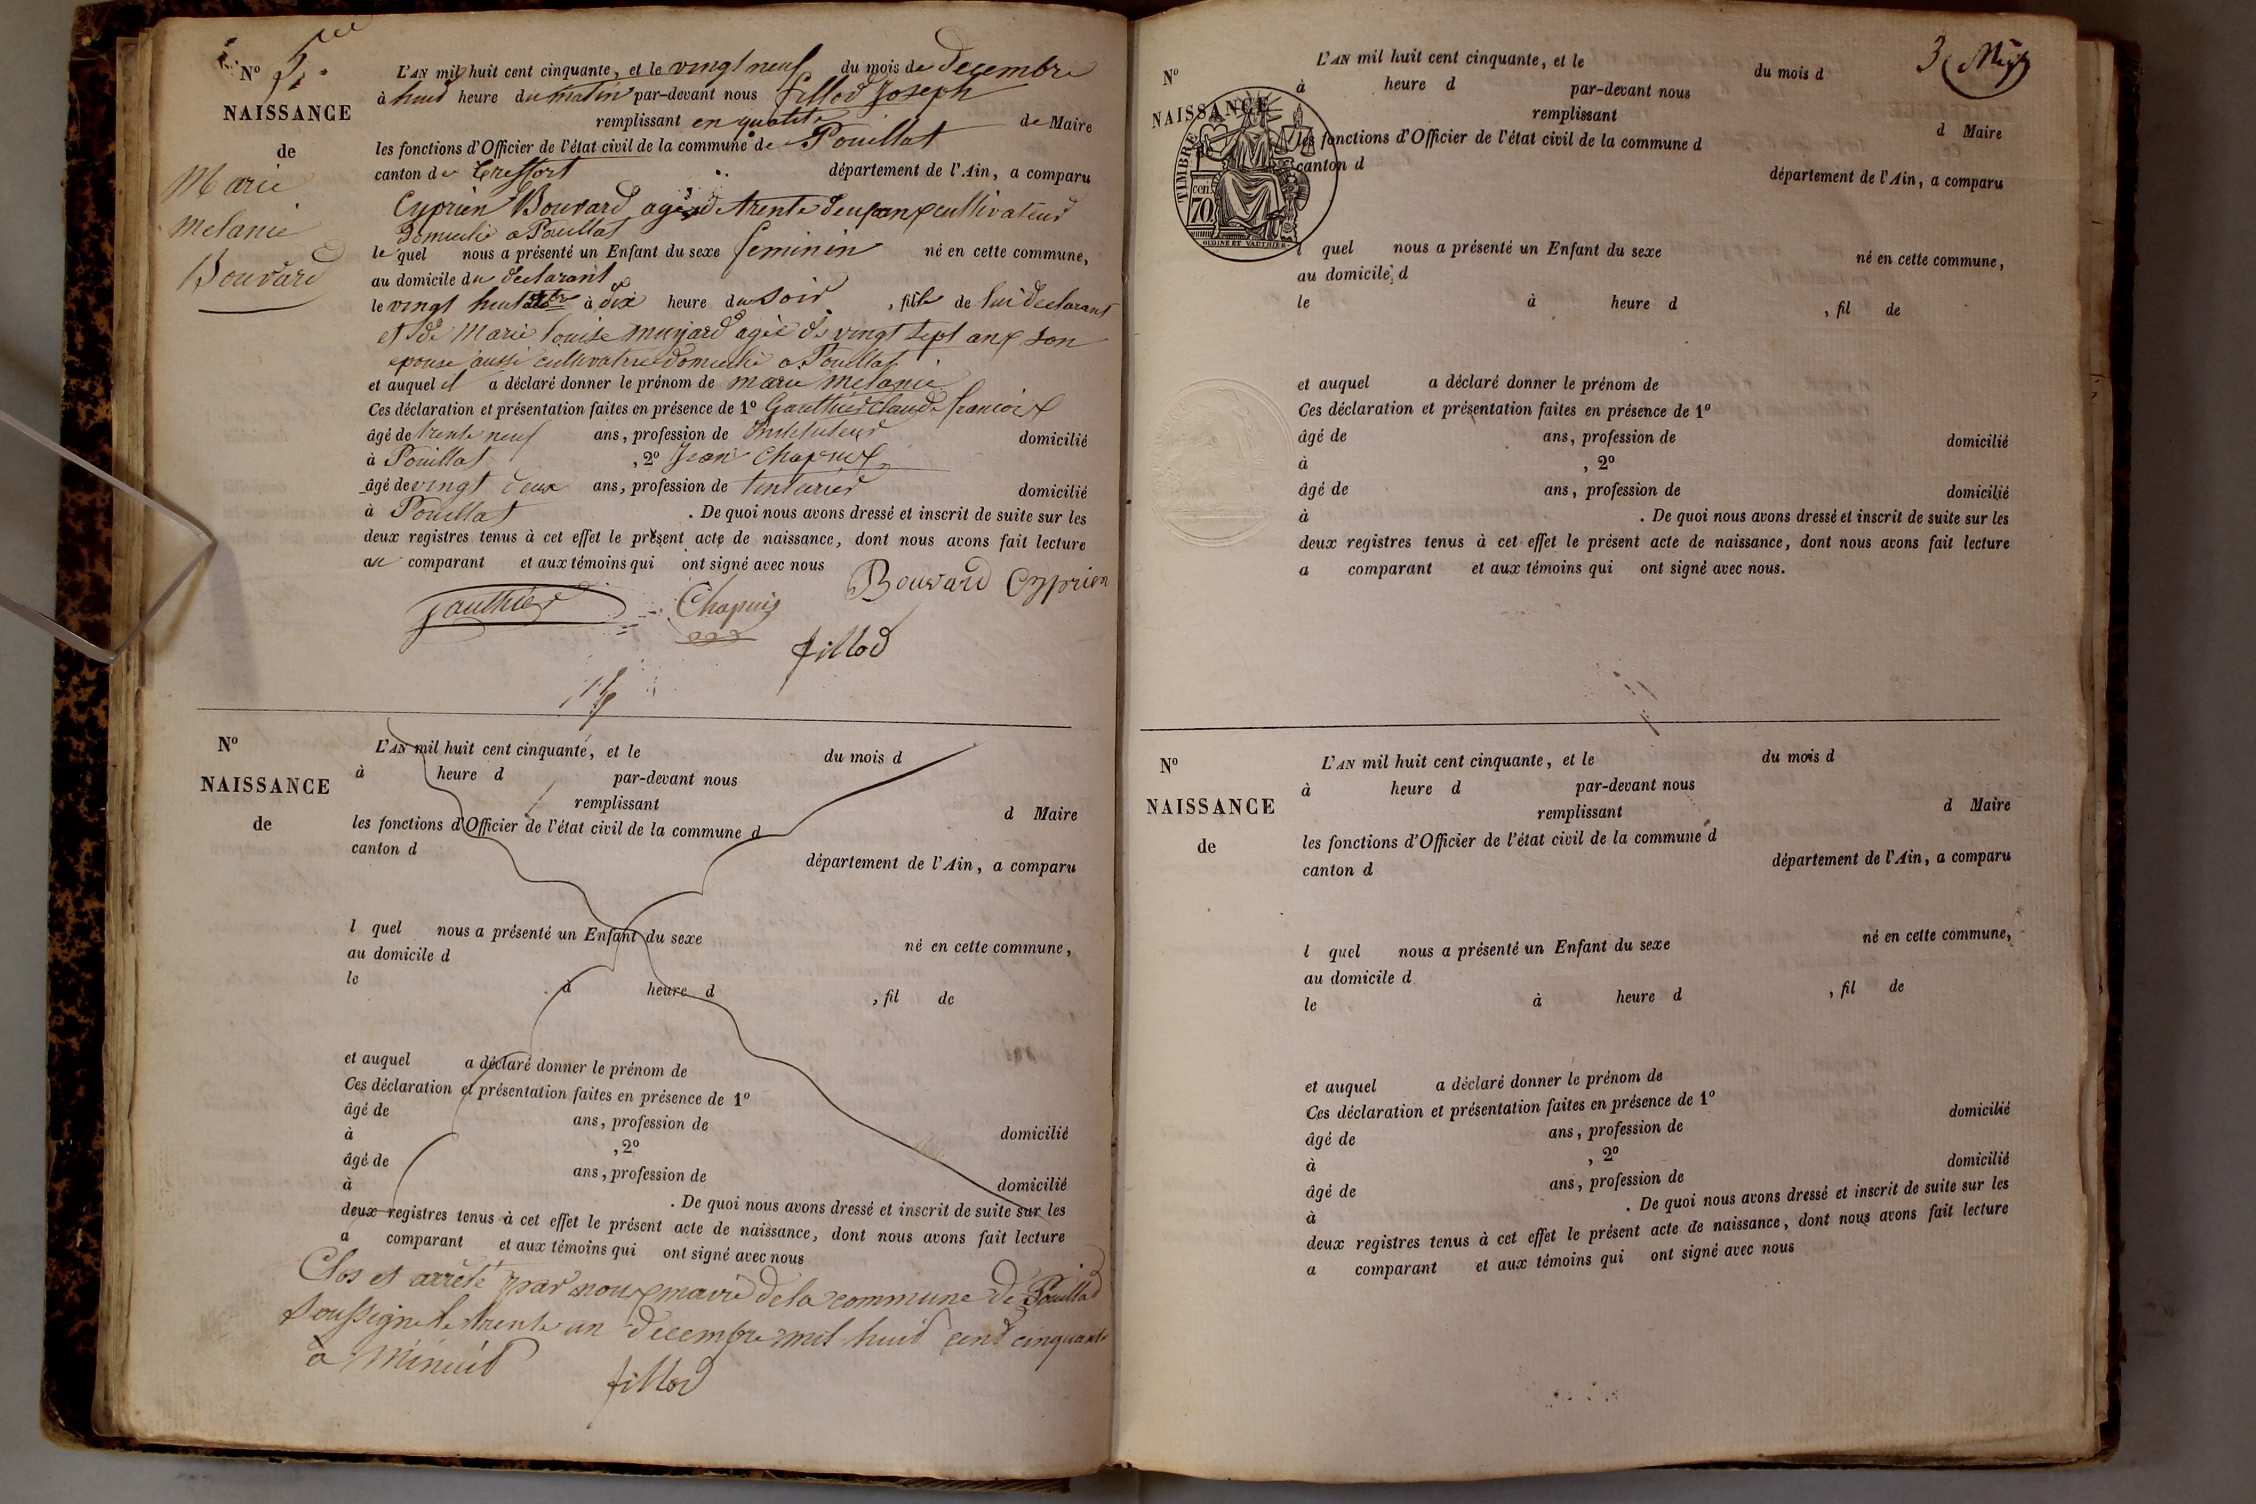 Nº 5.
NAISSANCE
de
Marie
Melanie
Bouvard
L'AN mil huit cent cinquante, et le vingt neuf du mois de decembre
à huit heure du matin par-devant nous fillod Joseph
remplissant en qualité de Maire
les fonctions d'Officier de l'état civil de la commune de Pouillat
canton de Treffort département de l'Ain, a comparu
Cyprien Bouvard agé de trente deux anx cultivateur
domicilié a Pouillat
le quel nous a présenté un Enfant du sexe feminin né en cette commune,
au domicile du declarant
le vingt huit à dix heure du soir, fille de lui declarant
et de Marie louise agée de vingt sept anx son
epouse aussi cultivatrice domicilié a Pouillat
et auquel il a déclaré donner le prénom de marie melanie
Ces déclaration et présentation faites en présence de 1º Gauthier Claude francoix
âgé de trente neuf ans, profession de Instituteur domicilié
à Pouillat, 2º Jean Chapuix
âgé de vingt deux ans, profession de domicilié
à Pouillat. De quoi nous avons dressé et inscrit de suite sur les
deux registres tenus à cet effet le présent acte de naissance, dont nous avons fait lecture
au comparant et aux témoins qui ont signé avec nous
Bouvard Cyprien
Gauthier Chapuis
fillod
Nº
NAISSANCE
de
L'AN mil huit cent cinquante, et le du mois d
à heure d par-devant nous
remplissant d Maire
les fonctions d'Officier de l'état civil de la commune d
canton d département de l'Ain, a comparu
l quel nous a présenté un Enfant du sexe né en cette commune,
au domicile d
le à heure d , fil de
et auquel a déclaré donner le prénom de
Ces déclaration et présentation faites en présence de 1º
âgé de ans, profession de domicilié
à , 2º
âgé de ans, profession de domicilié
à . De quoi nous avons dressé et inscrit de suite sur les
deux registres tenus à cet effet le présent acte de naissance, dont nous avons fait lecture
a comparant et aux témoins qui ont signé avec nous
Clos et arrêté par noux maire de la commune de Pouillat
soussigne le trente un decembre mil huit cent cinquante
a minuit
fillod
3
Nº
NAISSANCE
TIMBRE
70 cen.
OUDINE ET VAUTHIER
L'AN mil huit cent cinquante, et le du mois d
à heure d par-devant nous
remplissant d Maire
les fonctions d'Officier de l'état civil de la commune d
canton d département de l'Ain, a comparu
l quel nous a présenté un Enfant du sexe né en cette commune,
au domicile d
le à heure d , fil de
et auquel a déclaré donner le prénom de
Ces déclaration et présentation faites en présence de 1º
âgé de ans, profession de domicilié
à , 2º
âgé de ans, profession de domicilié
à . De quoi nous avons dressé et inscrit de suite sur les
deux registres tenus à cet effet le présent acte de naissance, dont nous avons fait lecture
a comparant et aux témoins qui ont signé avec nous.
Nº
NAISSANCE
de
L'AN mil huit cent cinquante, et le du mois d
à heure d par-devant nous
remplissant d Maire
les fonctions d'Officier de l'état civil de la commune d
canton d département de l'Ain, a comparu
l quel nous a présenté un Enfant du sexe né en cette commune,
au domicile d
le à heure d , fil de
et auquel a déclaré donner le prénom de
Ces déclaration et présentation faites en présence de 1º
âgé de ans, profession de domicilié
à , 2º
âgé de ans, profession de domicilié
à . De quoi nous avons dressé et inscrit de suite sur les
deux registres tenus à cet effet le présent acte de naissance, dont nous avons fait lecture
a comparant et aux témoins qui ont signé avec nous